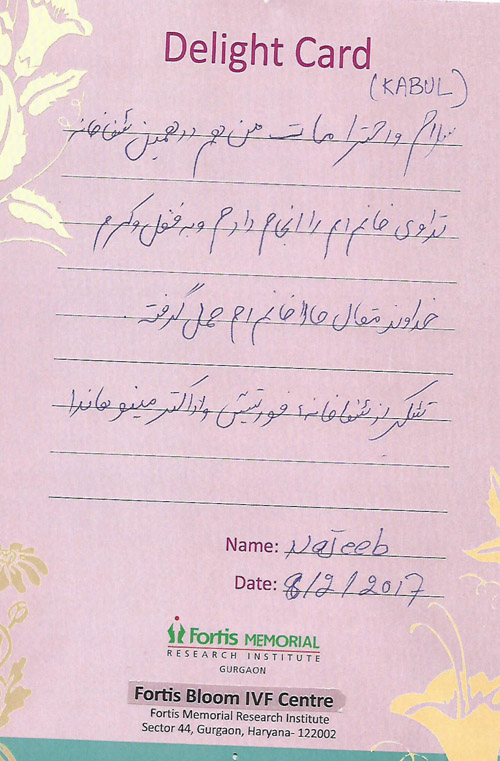 Delight Card
(KABUL)
سلام و احترامات من هم در همین شفاخانه
تداوی خانم ام را انجام دادم و به فضل و کرم
خداوند متعال حالا خانم ام حمل گرفته.
تشکر از شفاخانهٔ فورتیس و از داکتر مینو هاندا
Name: Najeeb
Date: 8/2/2017
Fortis MEMORIAL
RESEARCH INSTITUTE
GURGAON
Fortis Bloom IVF Centre
Fortis Memorial Research Institute
Sector 44, Gurgaon, Haryana- 122002